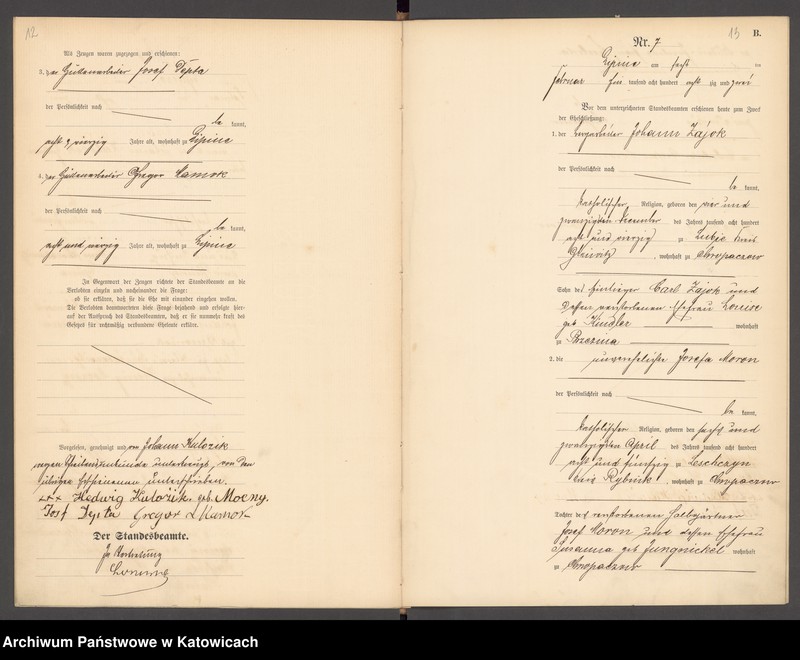 12
Als Zeugen waren zugezogen und erschienen:
3. der Hüttenarbeiter Josef Depta
der Persönlichkeit nach
be kannt,
acht u vierzig Jahre alt, wohnhaft zu Lipine
4. der Hüttenarbeiter Gregor Kamok
der Persönlichkeit nach
be kannt,
acht und vierzig Jahre alt, wohnhaft zu Lipine
In Gegenwart der Zeugen richtete der Standesbeamte an die
Verlobten einzeln und nacheinander die Frage:
ob sie erklären, daß sie die Ehe mit einander eingehen wollen.
Die Verlobten beantworteten diese Frage bejahend und erfolgte hier-
auf der Ausspruch des Standesbeamten, daß er sie nunmehr kraft des
Gesetzes für rechtmäßig verbundene Eheleute erkläre.
Vorgelesen, genehmigt und von Johann Kulozik
wegen Schreibensunkunde unterkreuzt, von den
übrigen Erschienenen unterschrieben.
+++ Hedwig Kulozik, geb. Moczny.
Josef Depta Gregor Kamok
Der Standesbeamte.
In Vertretung
13
B.
Nr. 7
Lipine am sechs ten
Februar Ein tausend acht hundert acht zig und zwei
Vor dem unterzeichneten Standesbeamten erschienen heute zum Zweck
der Eheschließung:
1. der Bergarbeiter Johann Zajok
der Persönlichkeit nach
be kannt,
katholischer Religion, geboren den vier und
zwanzigsten Dezember des Jahres tausend acht hundert
acht und vierzig zu Lubie Kreis
Gleiwitz, wohnhaft zu Chropaczow
Sohn des Einlieger Carl Zajok und
dessen verstorbenen Ehefrau Louise
geb Kindler wohnhaft
zu Brzezina
2. die unverehelichte Josefa Moron
der Persönlichkeit nach
be kannt,
katholischer Religion, geboren den sechs und
zwanzigsten April des Jahres tausend acht hundert
acht und fünfzig zu Leschczyn
Kreis Rybnik, wohnhaft zu Chropaczow
Tochter des verstorbenen Halbgärtner
Josef Moron und dessen Ehefrau
Susanna geb Jungnickel wohnhaft
zu Chropaczow
Archiwum Państwowe w Katowicach